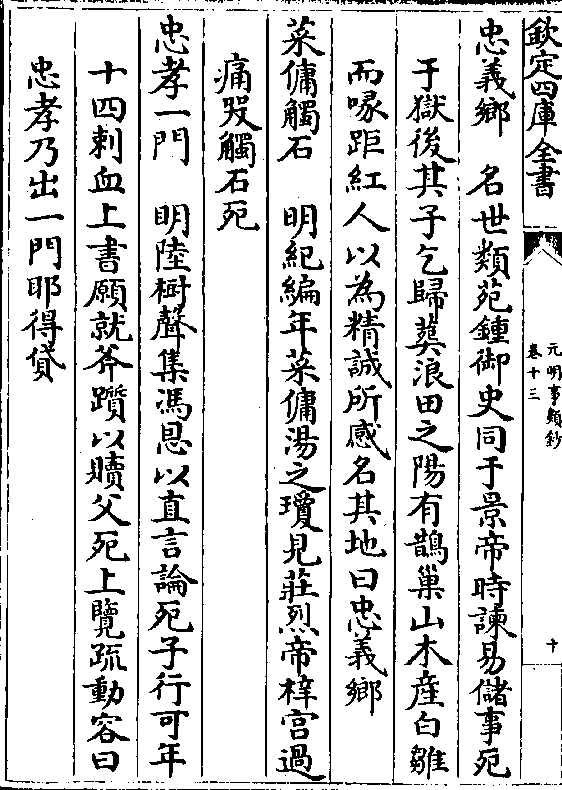 欽定四庫全書
元明事類鈔
卷十三
十
忠義鄉　名世類苑鍾御史同于景帝時諫易儲事死
于獄後其子乞歸葬浪田之陽有鵲巢山木産白雛
而喙距紅人以為精誠所感名其地曰忠義鄉
菜傭觸石　明紀編年菜傭湯之瓊見莊烈帝梓宮過
痛哭觸石死
忠孝一門　明陸樹聲集馮恩以直言論死子行可年
十四刺血上書願就斧躓以贖父死上覽疏動容曰
忠孝乃出一門耶得貸